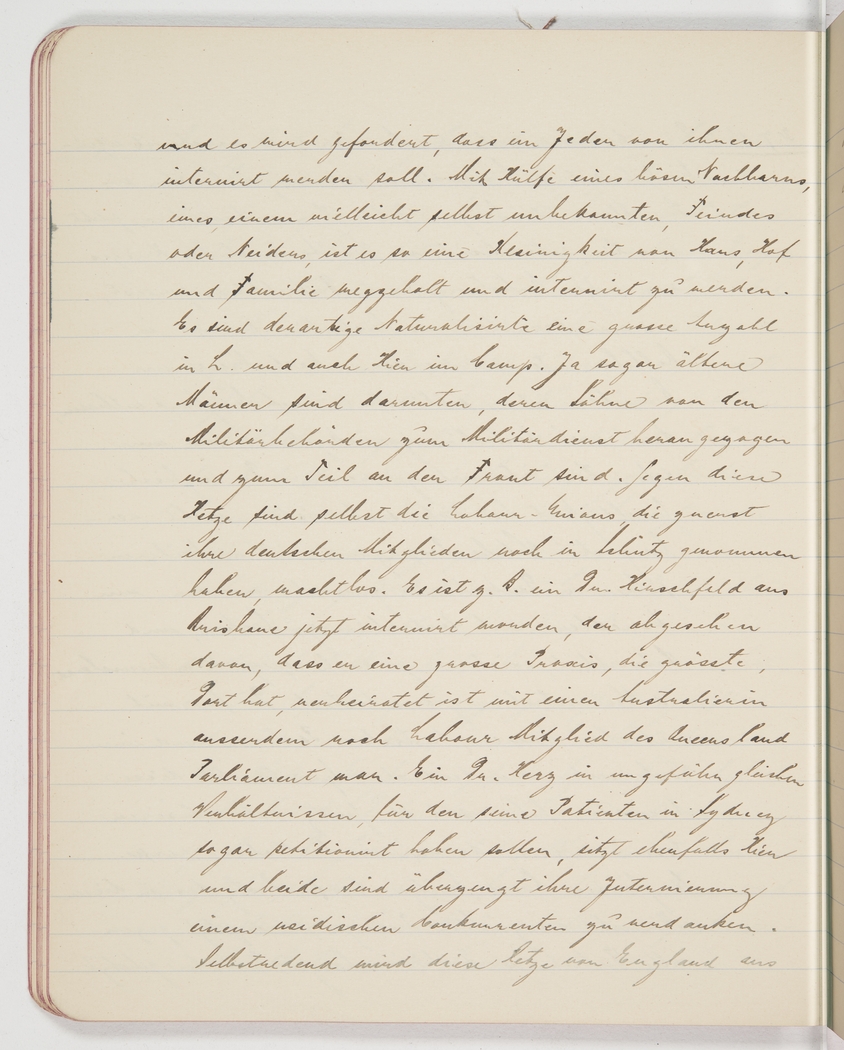 und es wird gefordert, dass ein Jeder von ihnen
internirt werden soll. Mit Hülfe eines bösen Nachbarns,
eines, einem vielleicht selbst unbekannten, Feindes
oder Neiders, ist es so eine Kleinigkeit von Haus, Hof
und Familie weggeholt und internirt zu werden.
Es sind derartige Naturalisirte eine grosse Anzahl
in L. und auch Hier im Camp. Ja sogar ältere
Männer sind darunter, deren Söhne von den
Militärbehörden zum Militärdienst herangezogen
und zum Teil an der Front sind. Gegen diese
Hetze sind selbst die Labour-Unions, die zuerst
ihre deutschen Mitglieder noch in Schutz genommen
haben, machtlos. Es ist z. B. ein Dr. Hirschfeld aus
Brisbane jetzt internirt worden, der abgesehen
davon, dass er eine grosse Praxis, die grösste,
Dort hat, verheiratet ist mit einer Australierin
ausserdem noch Labour Mitglied des Queensland
Parliament war. Ein Dr. Herz in ungefähr gleichen
Verhältnissen, für den seine Patienten in Sydney
sogar petitionirt haben sollen, sitzt ebenfalls Hier
und beide sind überzeugt ihre Internierung
einem neidischen Conkurrenten zu verdanken.
Selbstredend wird diese Hetze von England aus